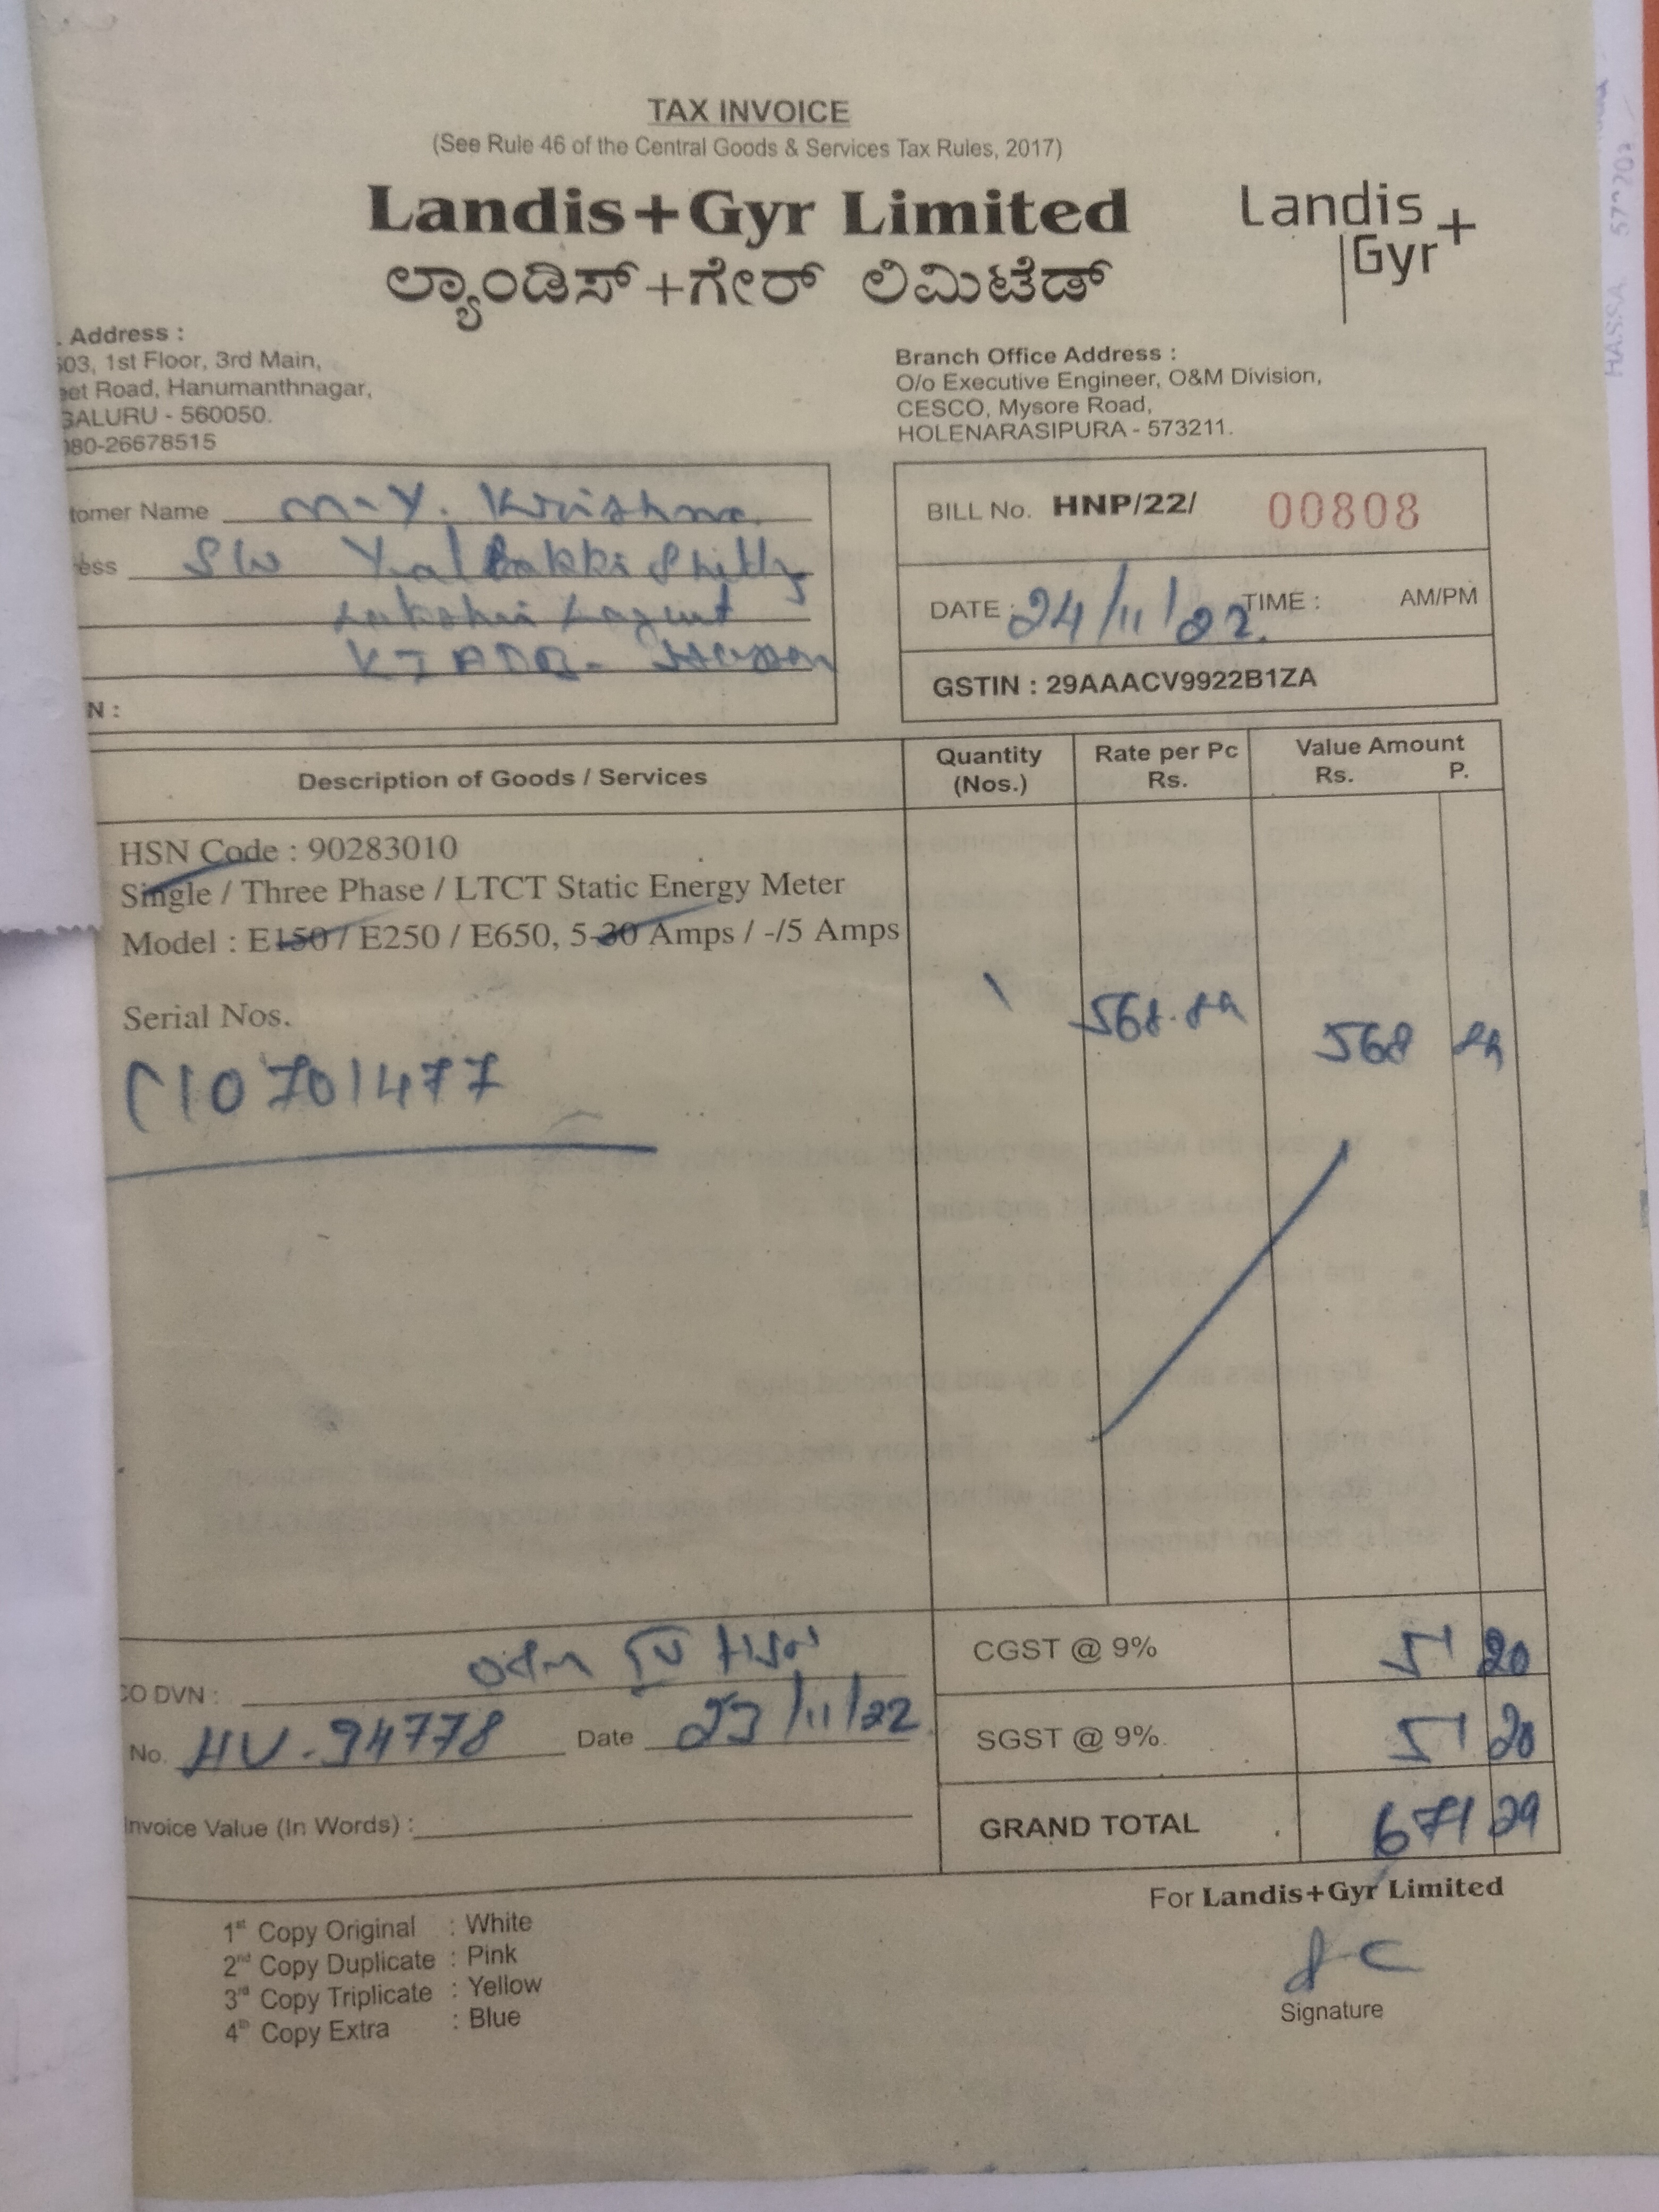 TAX INVOICE
(See Rule 46 of the Central Goods & Services Tax Rules, 2017)
Landis+Gyr Limited
Landis
Gyr+
ಲ್ಯಾಂಡಿಸ್+ಗೇರ್ ಲಿಮಿಟೆಡ್
. Address :
503, 1st Floor, 3rd Main,
eet Road, Hanumanthnagar,
GALURU - 560050.
080-26678515
Branch Office Address :
O/o Executive Engineer, O&M Division,
CESCO, Mysore Road,
HOLENARASIPURA - 573211.
tomer Name M.Y. Krishna
ess S/o
N :
BILL No. HNP/22/ 00808
DATE : 24/11/22. TIME : AM/PM
GSTIN : 29AAACV9922B1ZA
Description of Goods / Services
Quantity (Nos.)
Rate per Pc Rs.
Value Amount Rs. P.
HSN Code : 90283010
Single / Three Phase / LTCT Static Energy Meter
Model : E150 / E250 / E650, 5-30 Amps / -/5 Amps
Serial Nos.
1 568 568
C10701477
CO DVN :
CGST @ 9% 51 20
No. HV-94778 Date 23/11/22
SGST @ 9% 51 20
Invoice Value (In Words) :
GRAND TOTAL 671 29
For Landis+Gyr Limited
1st Copy Original : White
2nd Copy Duplicate : Pink
3rd Copy Triplicate : Yellow
4th Copy Extra : Blue
Signature